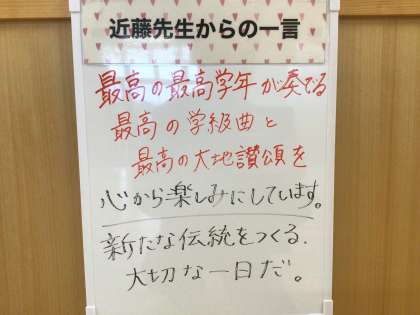 近藤先生からの一言
最高の最高学年が奏でる
最高の学級曲と
最高の大地讃頌を
心から楽しみにしています。
新たな伝統をつくる、
大切な一日だ。